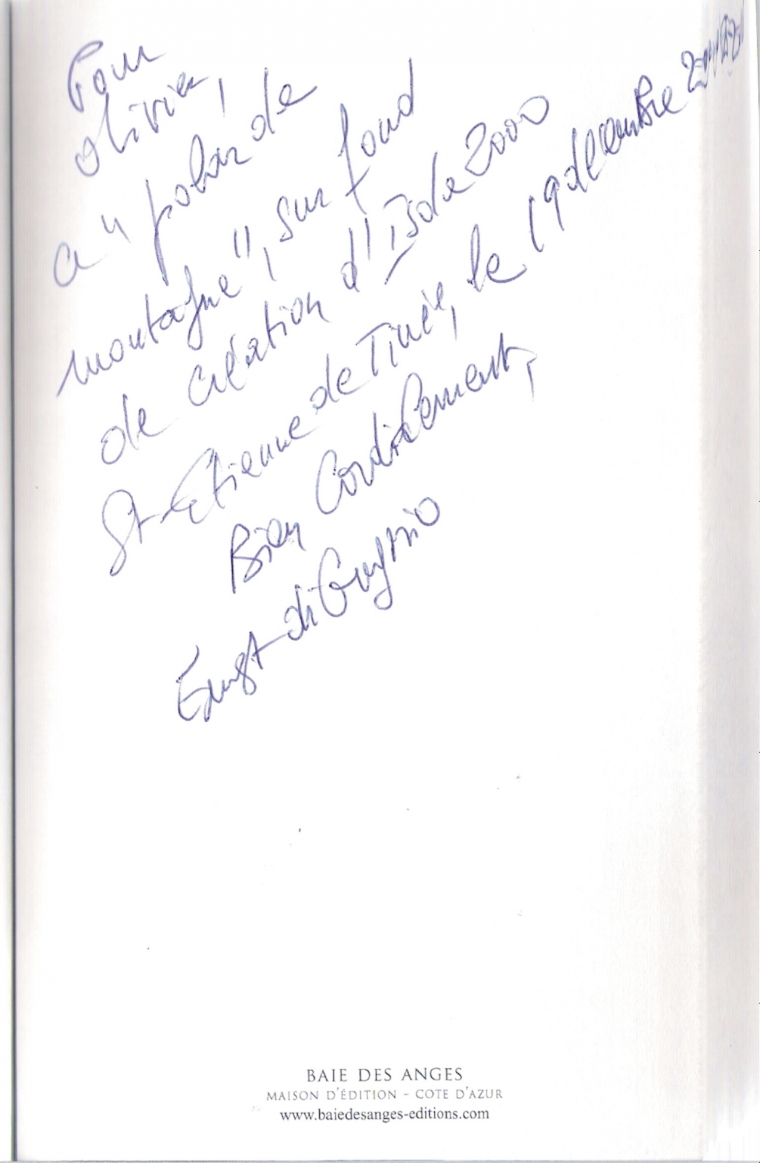 Pour
Olivier,
ce "polar de
montagne", sur fond
de création d'Isola 2000
St-Etienne de Tinée, le 19 décembre
Bien Cordialement,
di
BAIE DES ANGES
MAISON D'ÉDITION – COTE D'AZUR
www.baiedesanges-editions.com